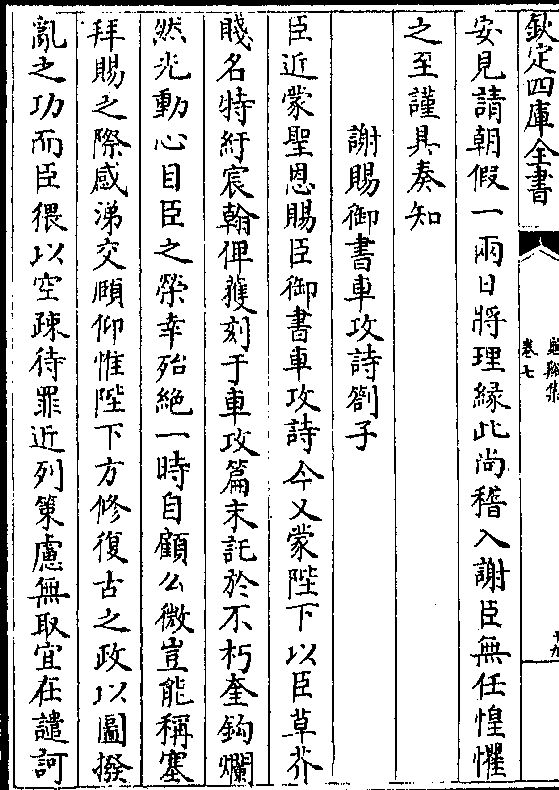 欽定四庫全書
卷七
安見請朝假一兩日將理緣此尚稽入謝臣無任惶懼
之至謹具奏知
謝賜御書車攻詩劄子
臣近蒙聖恩賜臣御書車攻詩今又蒙陛下以臣草芥
賤名特紆宸翰俾獲刻于車攻篇末託於不朽奎鈎爛
然光動心目臣之榮幸殆絶一時自顧么微豈能稱塞
拜賜之際感涕交頤仰惟陛下方修復古之政以圖撥
亂之功而臣猥以空疎待罪近列策慮無取宜在譴訶